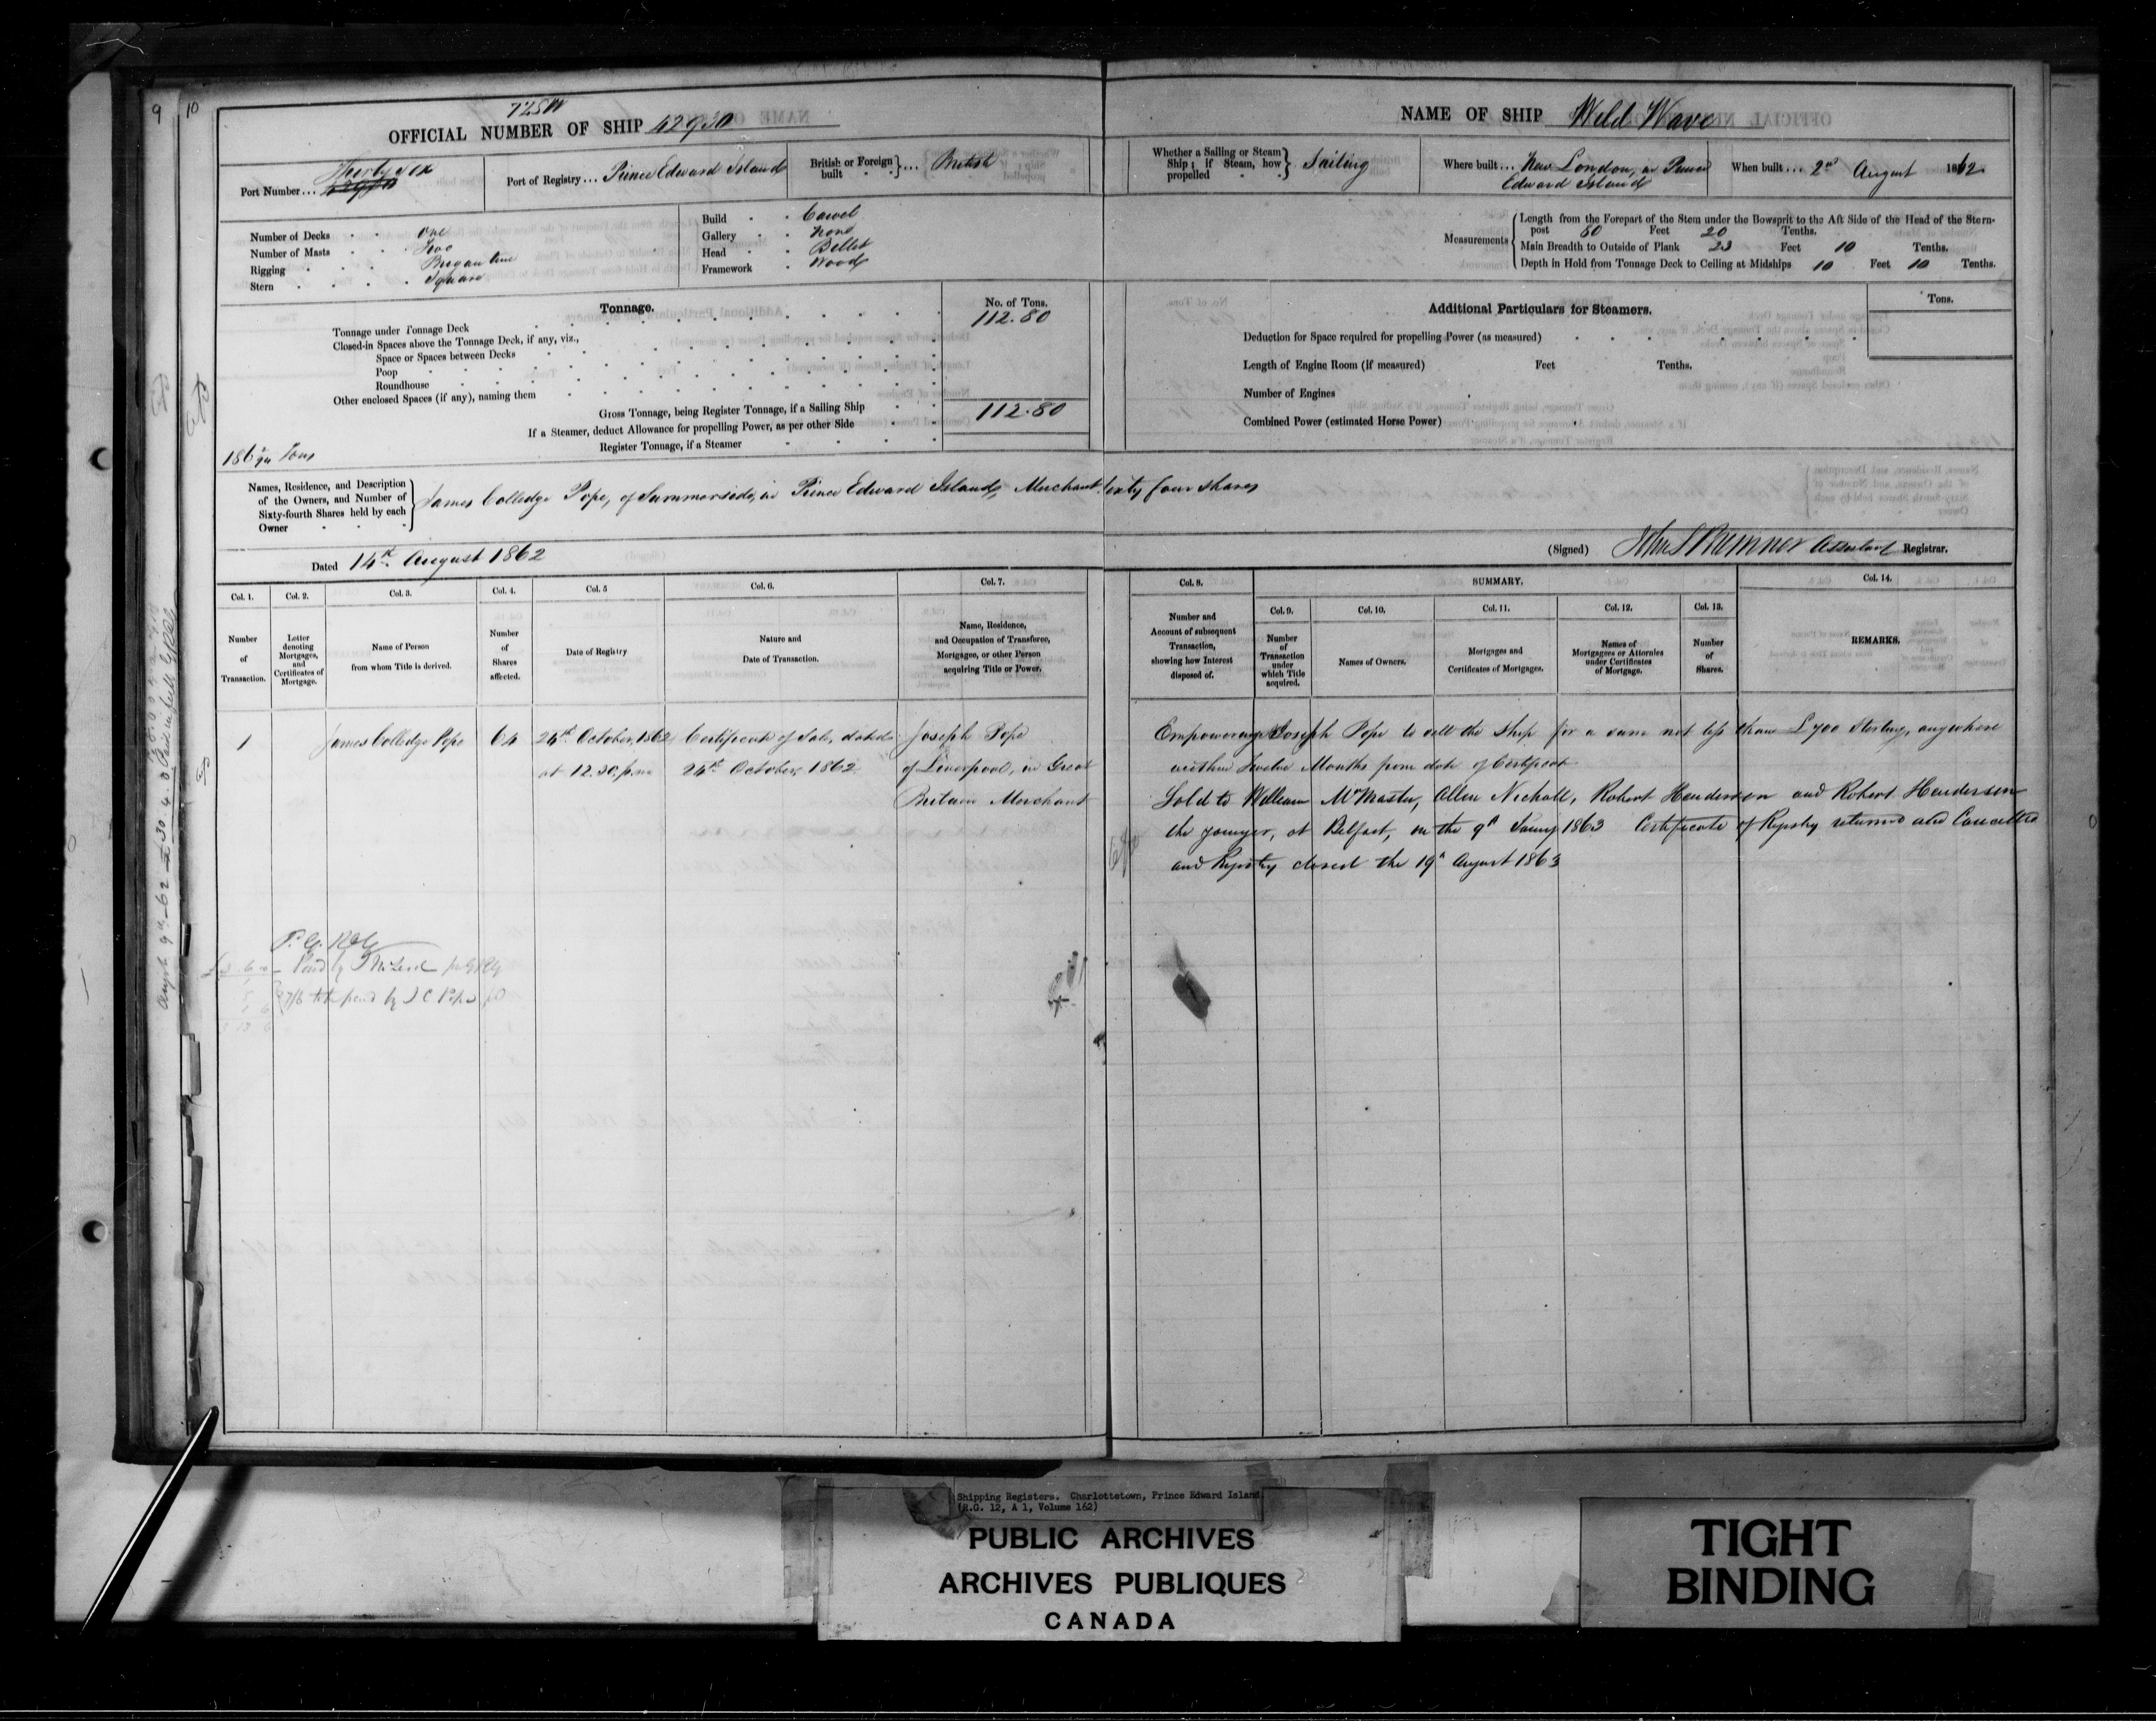 9
10
OFFICIAL NUMBER OF SHIP 42930
NAME OF SHIP Wild Wave
Port Number... Thirty Six
Port of Registry... Prince Edward Island
British or Foreign built } ... British
Whether a Sailing or Steam Ship; if Steam, how propelled } Sailing
Where built... New London, in Prince
Edward Island
When built... 2nd August 1862
Number of Decks One
Number of Masts Two
Rigging Brigantine
Stern Square
Build Carvel
Gallery None
Head Billet
Framework Wood
Measurements { Length from the Forepart of the Stem under the Bowsprit to the Aft Side of the Head of the Stern-
post 80 Feet 20 Tenths.
Main Breadth to Outside of Plank 23 Feet 10 Tenths.
Depth in Hold from Tonnage Deck to Ceiling at Midships 10 Feet 10 Tenths.
Tonnage.
No. of Tons.
Tonnage under Tonnage Deck 112.80
Closed-in Spaces above the Tonnage Deck, if any, viz.,
Space or Spaces between Decks
Poop
Roundhouse
Other enclosed Spaces (if any), naming them
Gross Tonnage, being Register Tonnage, if a Sailing Ship 112.80
If a Steamer, deduct Allowance for propelling Power, as per other Side
Register Tonnage, if a Steamer
Additional Particulars for Steamers.
Tons.
Deduction for Space required for propelling Power (as measured)
Length of Engine Room (if measured) Feet Tenths.
Number of Engines
Combined Power (estimated Horse Power)
Tons
Names, Residence, and Description of the Owners, and Number of Sixty-fourth Shares held by each Owner } James Colledge Pope, of Summerside, in Prince Edward Island, Merchant, sixty four shares
Dated 14th August 1862
(Signed) Assistant Registrar.
Col. 1. Number of Transaction.
Col. 2. Letter denoting Mortgages, and Certificates of Mortgage.
Col. 3. Name of Person from whom Title is derived.
Col. 4. Number of Shares affected.
Col. 5 Date of Registry
Col. 6. Nature and Date of Transaction.
Col. 7. Name, Residence, and Occupation of Transferee, Mortgagee, or other Person acquiring Title or Power.
Col. 8. Number and Account of subsequent Transaction, showing how Interest disposed of.
SUMMARY.
Col. 9. Number of Transaction under which Title acquired.
Col. 10. Names of Owners.
Col. 11. Mortgages and Certificates of Mortgages.
Col. 12. Names of Mortgagees or Attornies under Certificates of Mortgage.
Col. 13. Number of Shares.
Col. 14. REMARKS.
1 James Colledge Pope 64 24th October, 1862 Certificate of Sale, dated Joseph Pope
at 12.30 p.m. 24th October 1862 of Liverpool, in Great
Britain Merchant
Empowering Joseph Pope to sell the Ship for a sum not less than £700 Sterling, anywhere
within Twelve Months from date of Certificate
Sold to William McMaster, Allen Nicholl, Robert Henderson and Robert Henderson
the younger, at Belfast, on the 9th Jany 1863 Certificate of Registry returned and Cancelled
and Registry closed the 19th August 1863
Shipping Registers. Charlottetown, Prince Edward Island
(R.G. 12, A 1, Volume 162)
PUBLIC ARCHIVES
ARCHIVES PUBLIQUES
CANADA
TIGHT
BINDING